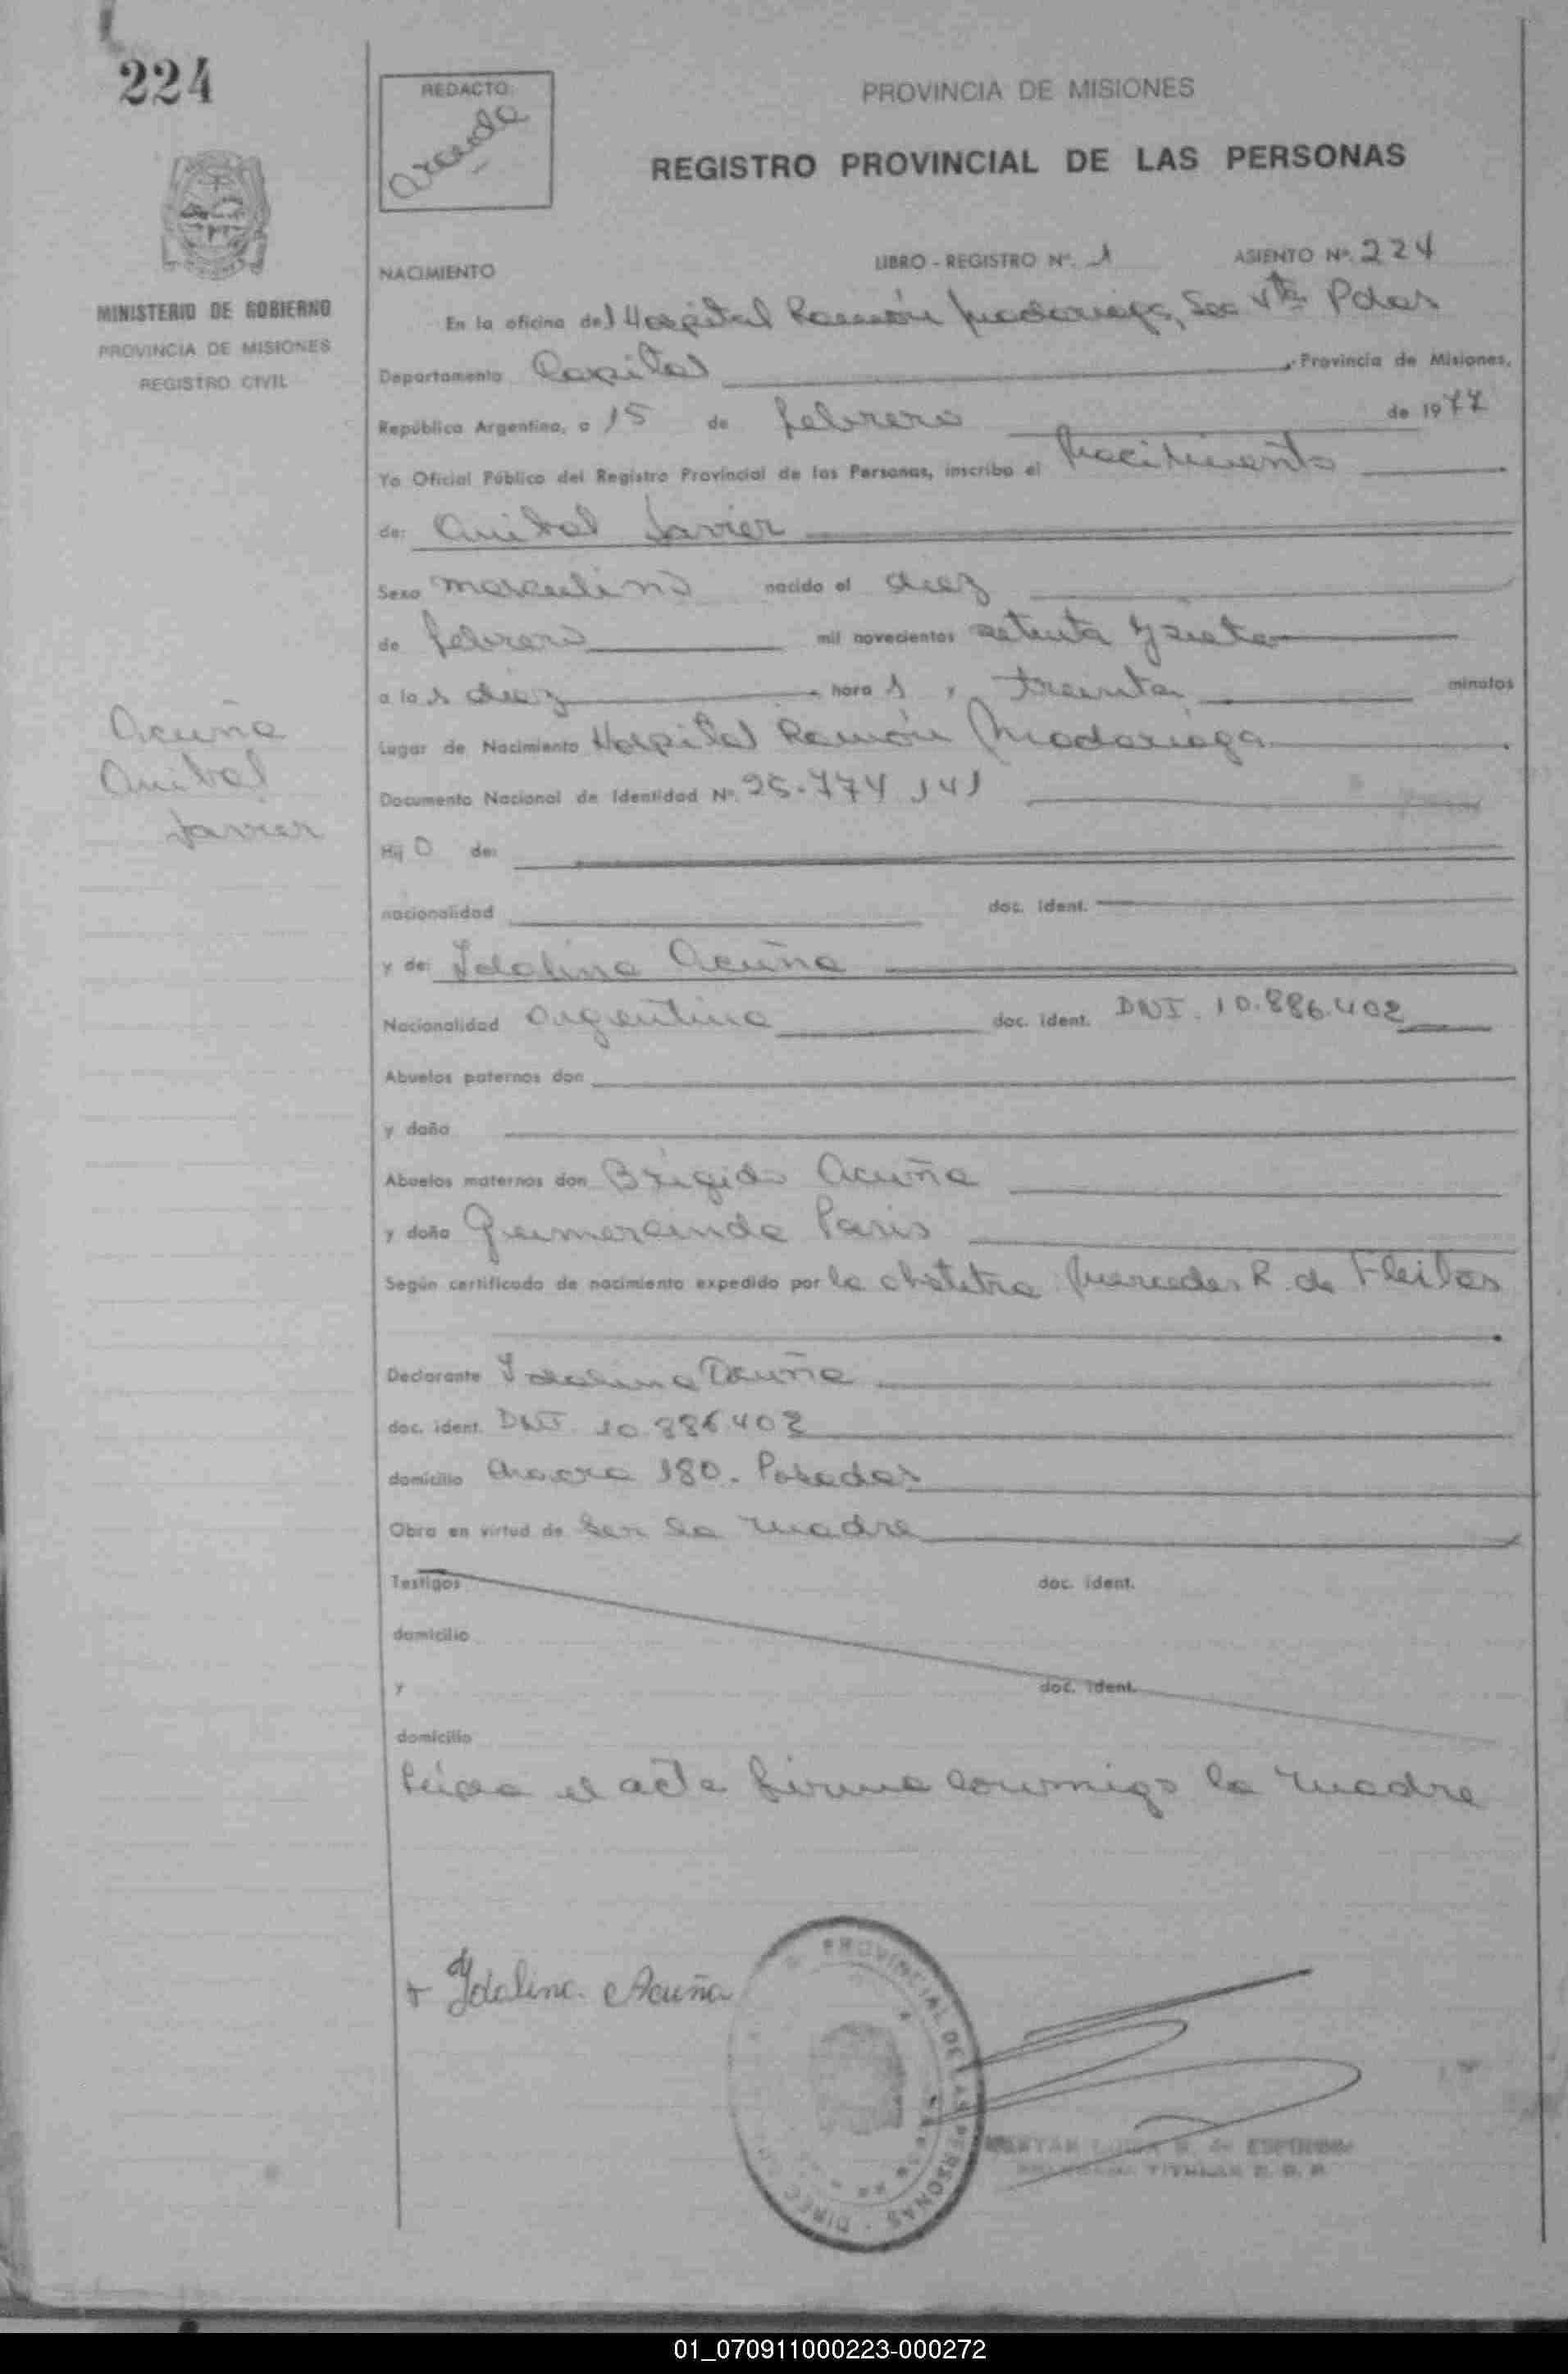 224
REDACTO
PROVINCIA DE MISIONES
REGISTRO PROVINCIAL DE LAS PERSONAS
MINISTERIO DE GOBIERNO
PROVINCIA DE MISIONES
REGISTRO CIVIL
NACIMIENTO LIBRO - REGISTRO Nº. 1 ASIENTO Nº. 224
En la oficina del Hospital Ramón Madariaga, Sec Vta Pdas
Departamento Capital, Provincia de Misiones,
República Argentina, a 15 de febrero de 1977
Yo Oficial Público del Registro Provincial de las Personas, inscribo el Nacimiento
de: Anibal Javier
Sexo masculino nacido el diez
de febrero mil novecientos setenta y siete
a las diez horas y treinta minutos
Lugar de Nacimiento Hospital Ramón Madariaga
Acuña
Anibal
Javier
Documento Nacional de Identidad Nº. 25.774.141
Hijo de:
nacionalidad doc. ident.
y de: Idalina Acuña
Nacionalidad argentina doc. ident. DNI. 10.886.402
Abuelos paternos don
y doña
Abuelos maternos don Brigido Acuña
y doña Gumercinda Paris
Según certificado de nacimiento expedido por la obstetra Mercedes R. de Fleitas
Declarante Idalina Acuña
doc. ident. DNI. 10.886.402
domicilio Chacra 180. Posadas
Obra en virtud de ser la madre
Testigos doc. ident.
domicilio
y doc. ident.
domicilio
Leída el acta firma conmigo la madre
+ Ydalina Acuña
PROVINCIAL DE LAS PERSONAS
01_070911000223-000272